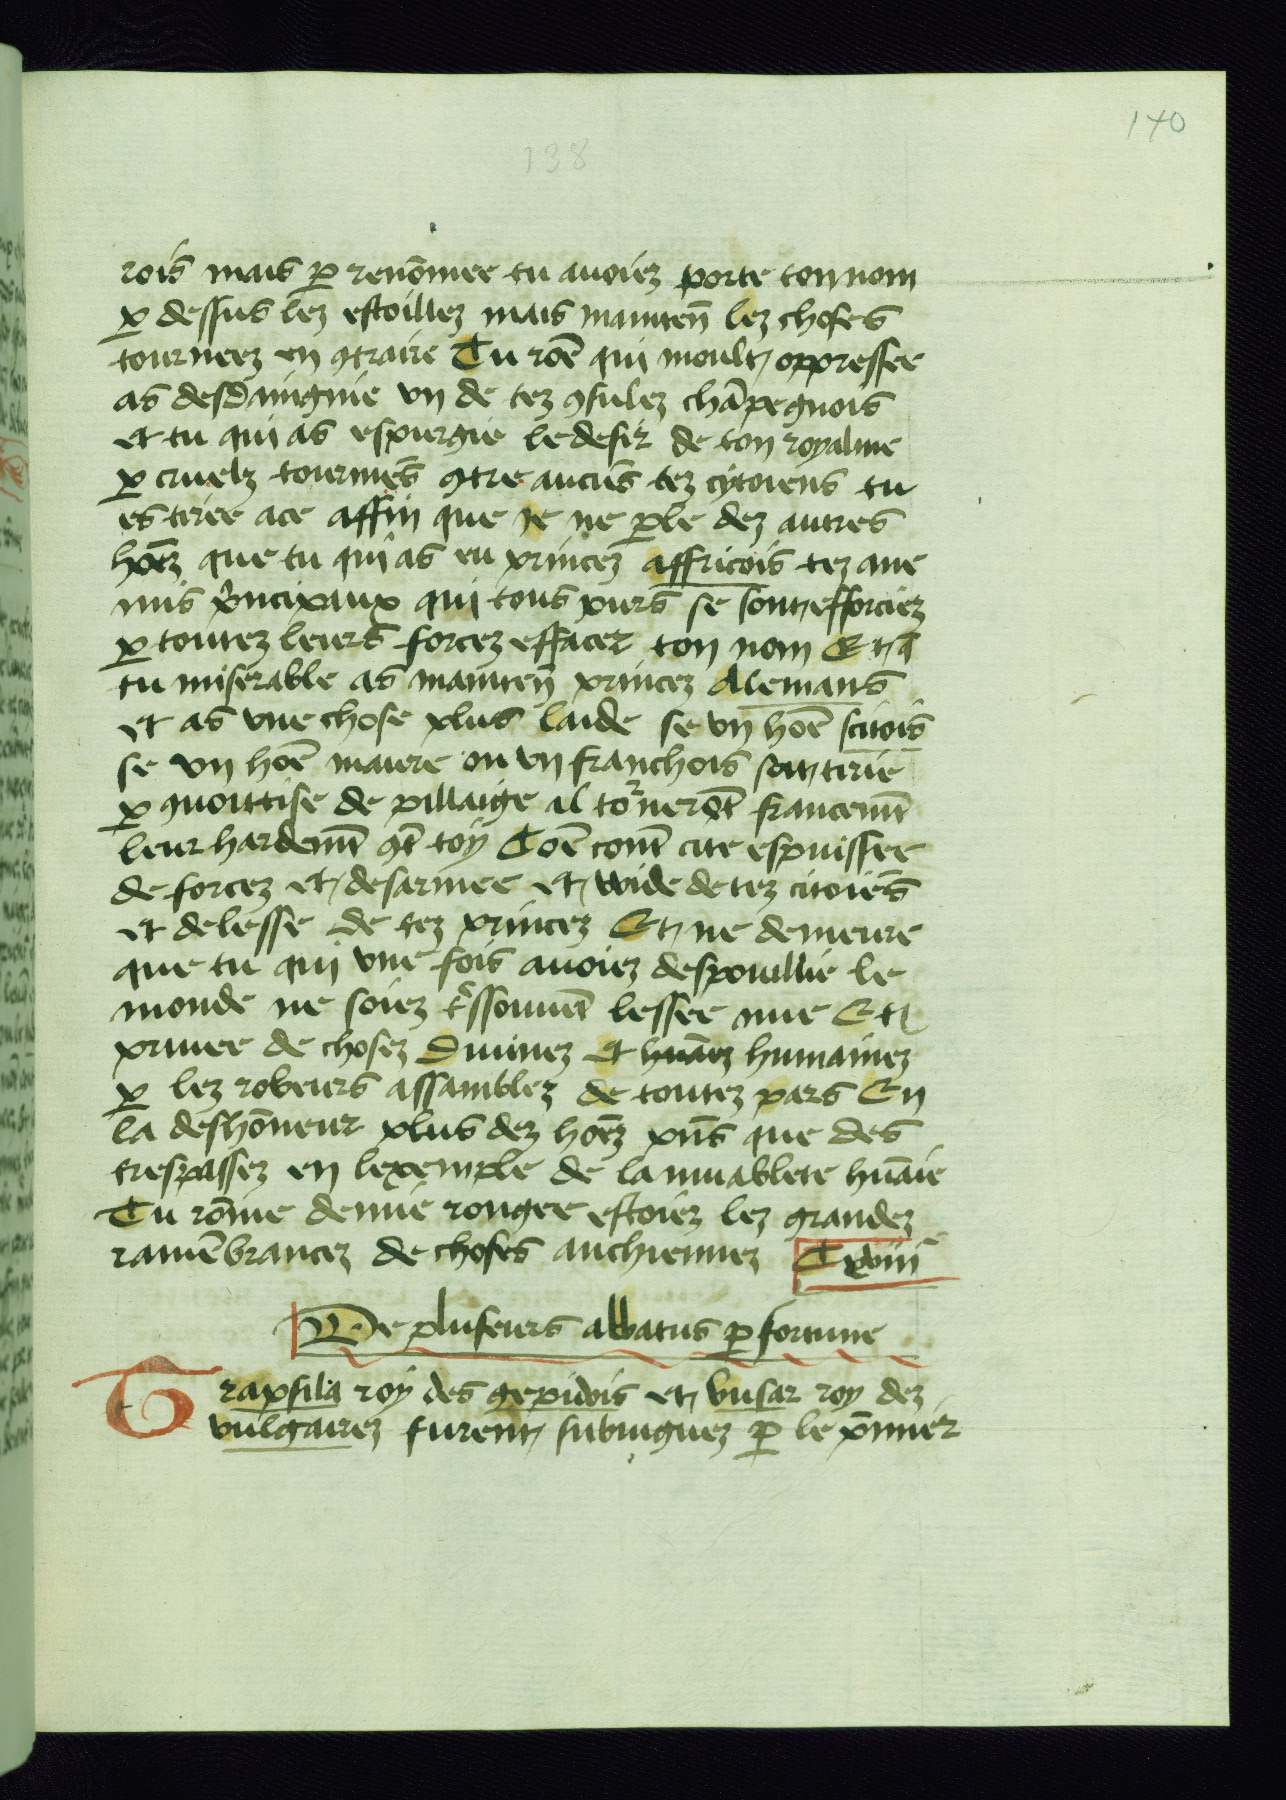 140
138
rois mais ꝑ renōmee tu auoiez porte ton nom
ꝑ dessus lez estoillez mais mainten̄ lez choses
tourneez en ꝯtraire Tu rōe qui moult oppressee
as desdaingnie vn de tez ꝯsulez chāpegnois
et tu qui as espurgie le desir de ton royalme
ꝑ cruelz tourmēs ꝯtre aucūs tez cytoiens tu
es tiree ace affin que ie ne ꝑle dez autres
hōez que tu qui as eu princez affricois tez ane
mis p̄ncipaux qui tous purs se sont efforciez
ꝑ toutez leurs forcez effacer ton nom Et q̄
tu miserable as mainten̄ princez Alemans
et as vne chose plus laide se vn hōe scitois
se vn hōe maure ou vn franchois sont tirie
ꝑ quoittise de pillaige il to^rnerōt francem̄t
leur hardem̄t ꝯt̄ toy Toē com̄t cite espuissee
de forcez et desarmee et wide de tez citoiēs
et delesse de tez princez Et ne demeure
que tu qui vne fois auoiez despouillie le
monde ne soiez t^rssouuēt lessee nue Et
priuee de chosez diuinez et huāez humainez
ꝑ lez robeurs assamblez de toutez pars En
la deshōneur plus dez hōez pn̄s que des
trespassez en lexemple de la muablete huāie
Tu rōme demie rongee estoiez lez grandez
ramēbrancez de choses anchiennez C xviii^e
De pluseurs abbatus ꝑ fortune
Trapsila roy des gepidois et busar roy dez
vulgairez furent subiuguez ꝑ le p̄mier